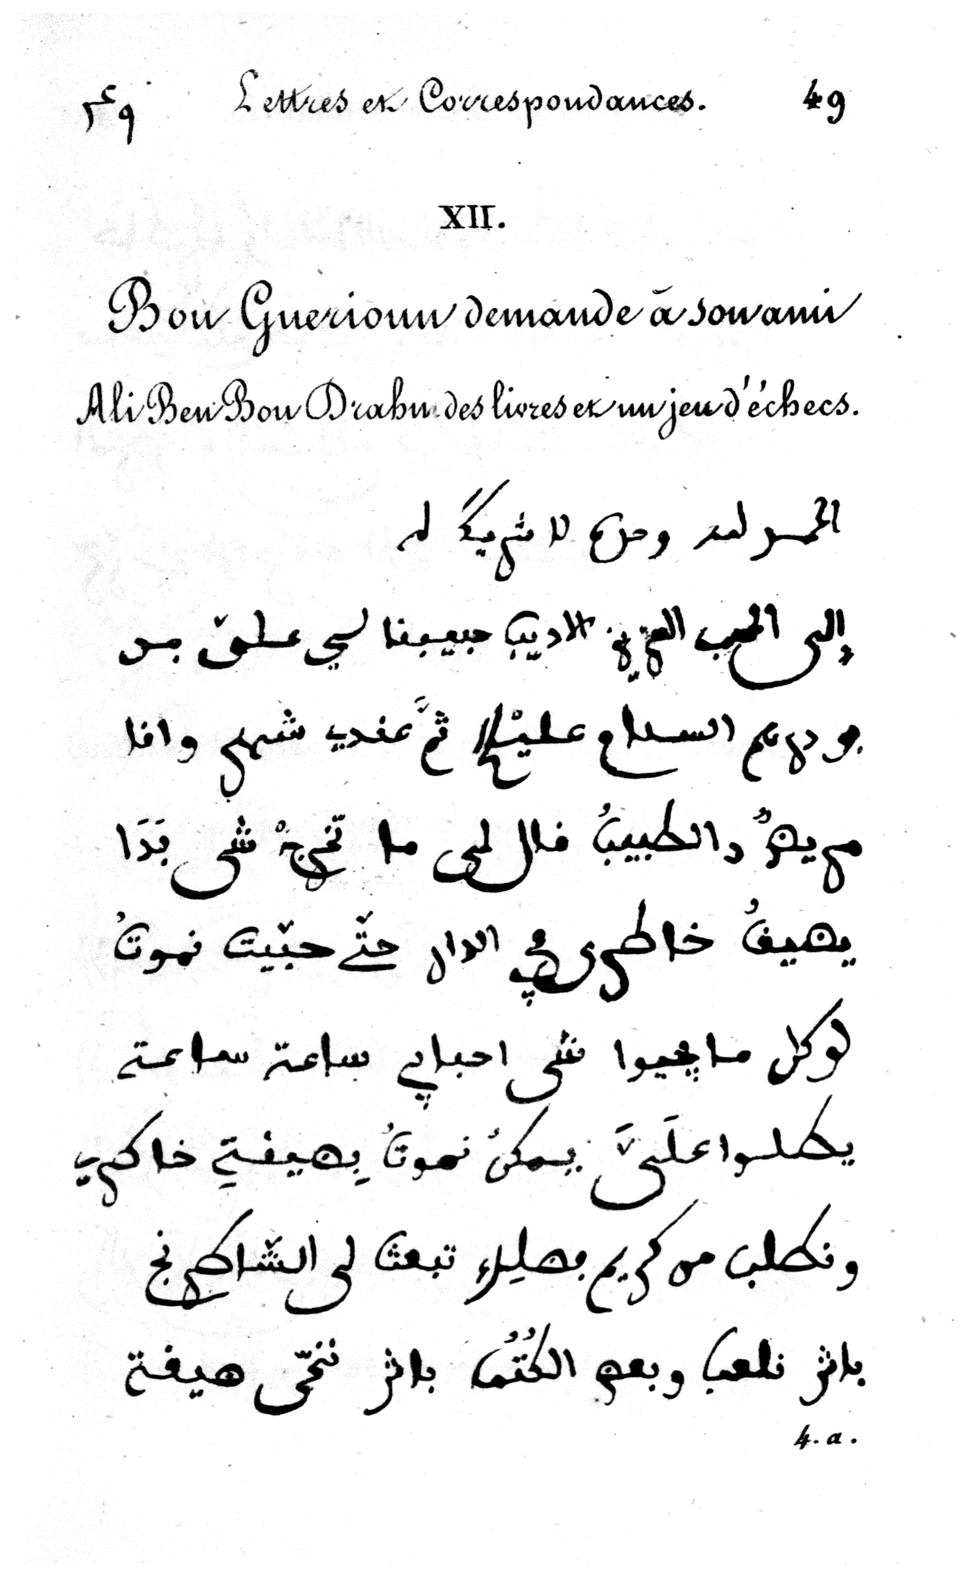 ٤٩ Lettres et Correspondances. 49
XII.
Bou Guerioun demande à son ami
Ali Ben Bou Drahm des livres et un jeu d'échecs.
الحمد لله وحده لا شريك له
إلى المحب العزيز الاديب حبيبنا لسي علي بن
بو درهم السلام عليك ثمَّ عندي شهر وانا
مريض والطبيبُ قال لي ما تخرجْ شي بَدَا
يضيقُ خاطري في الدار حتّى حبّيت نموتُ
لو كان ما يجيوا شي احبابي ساعة ساعة
يطلوا علَيَّ يمكنُ نموتُ بِضيقةِ خاطري
ونطلب من كريم فضلِك تبعث لي الشّاطرنج
باش نلعب وبعض الكُتُب باش ننحّي ضيقة
4.a.